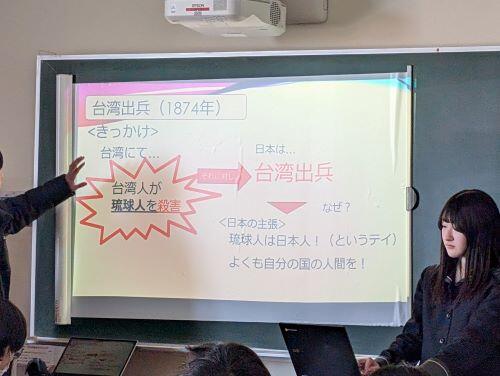 EPSON
台湾出兵（1874年）
<きっかけ>
台湾にて…
台湾人が
琉球人を殺害
それに対し
日本は…
台湾出兵
なぜ？
<日本の主張>
琉球人は日本人！（というテイ）
よくも自分の国の人間を！